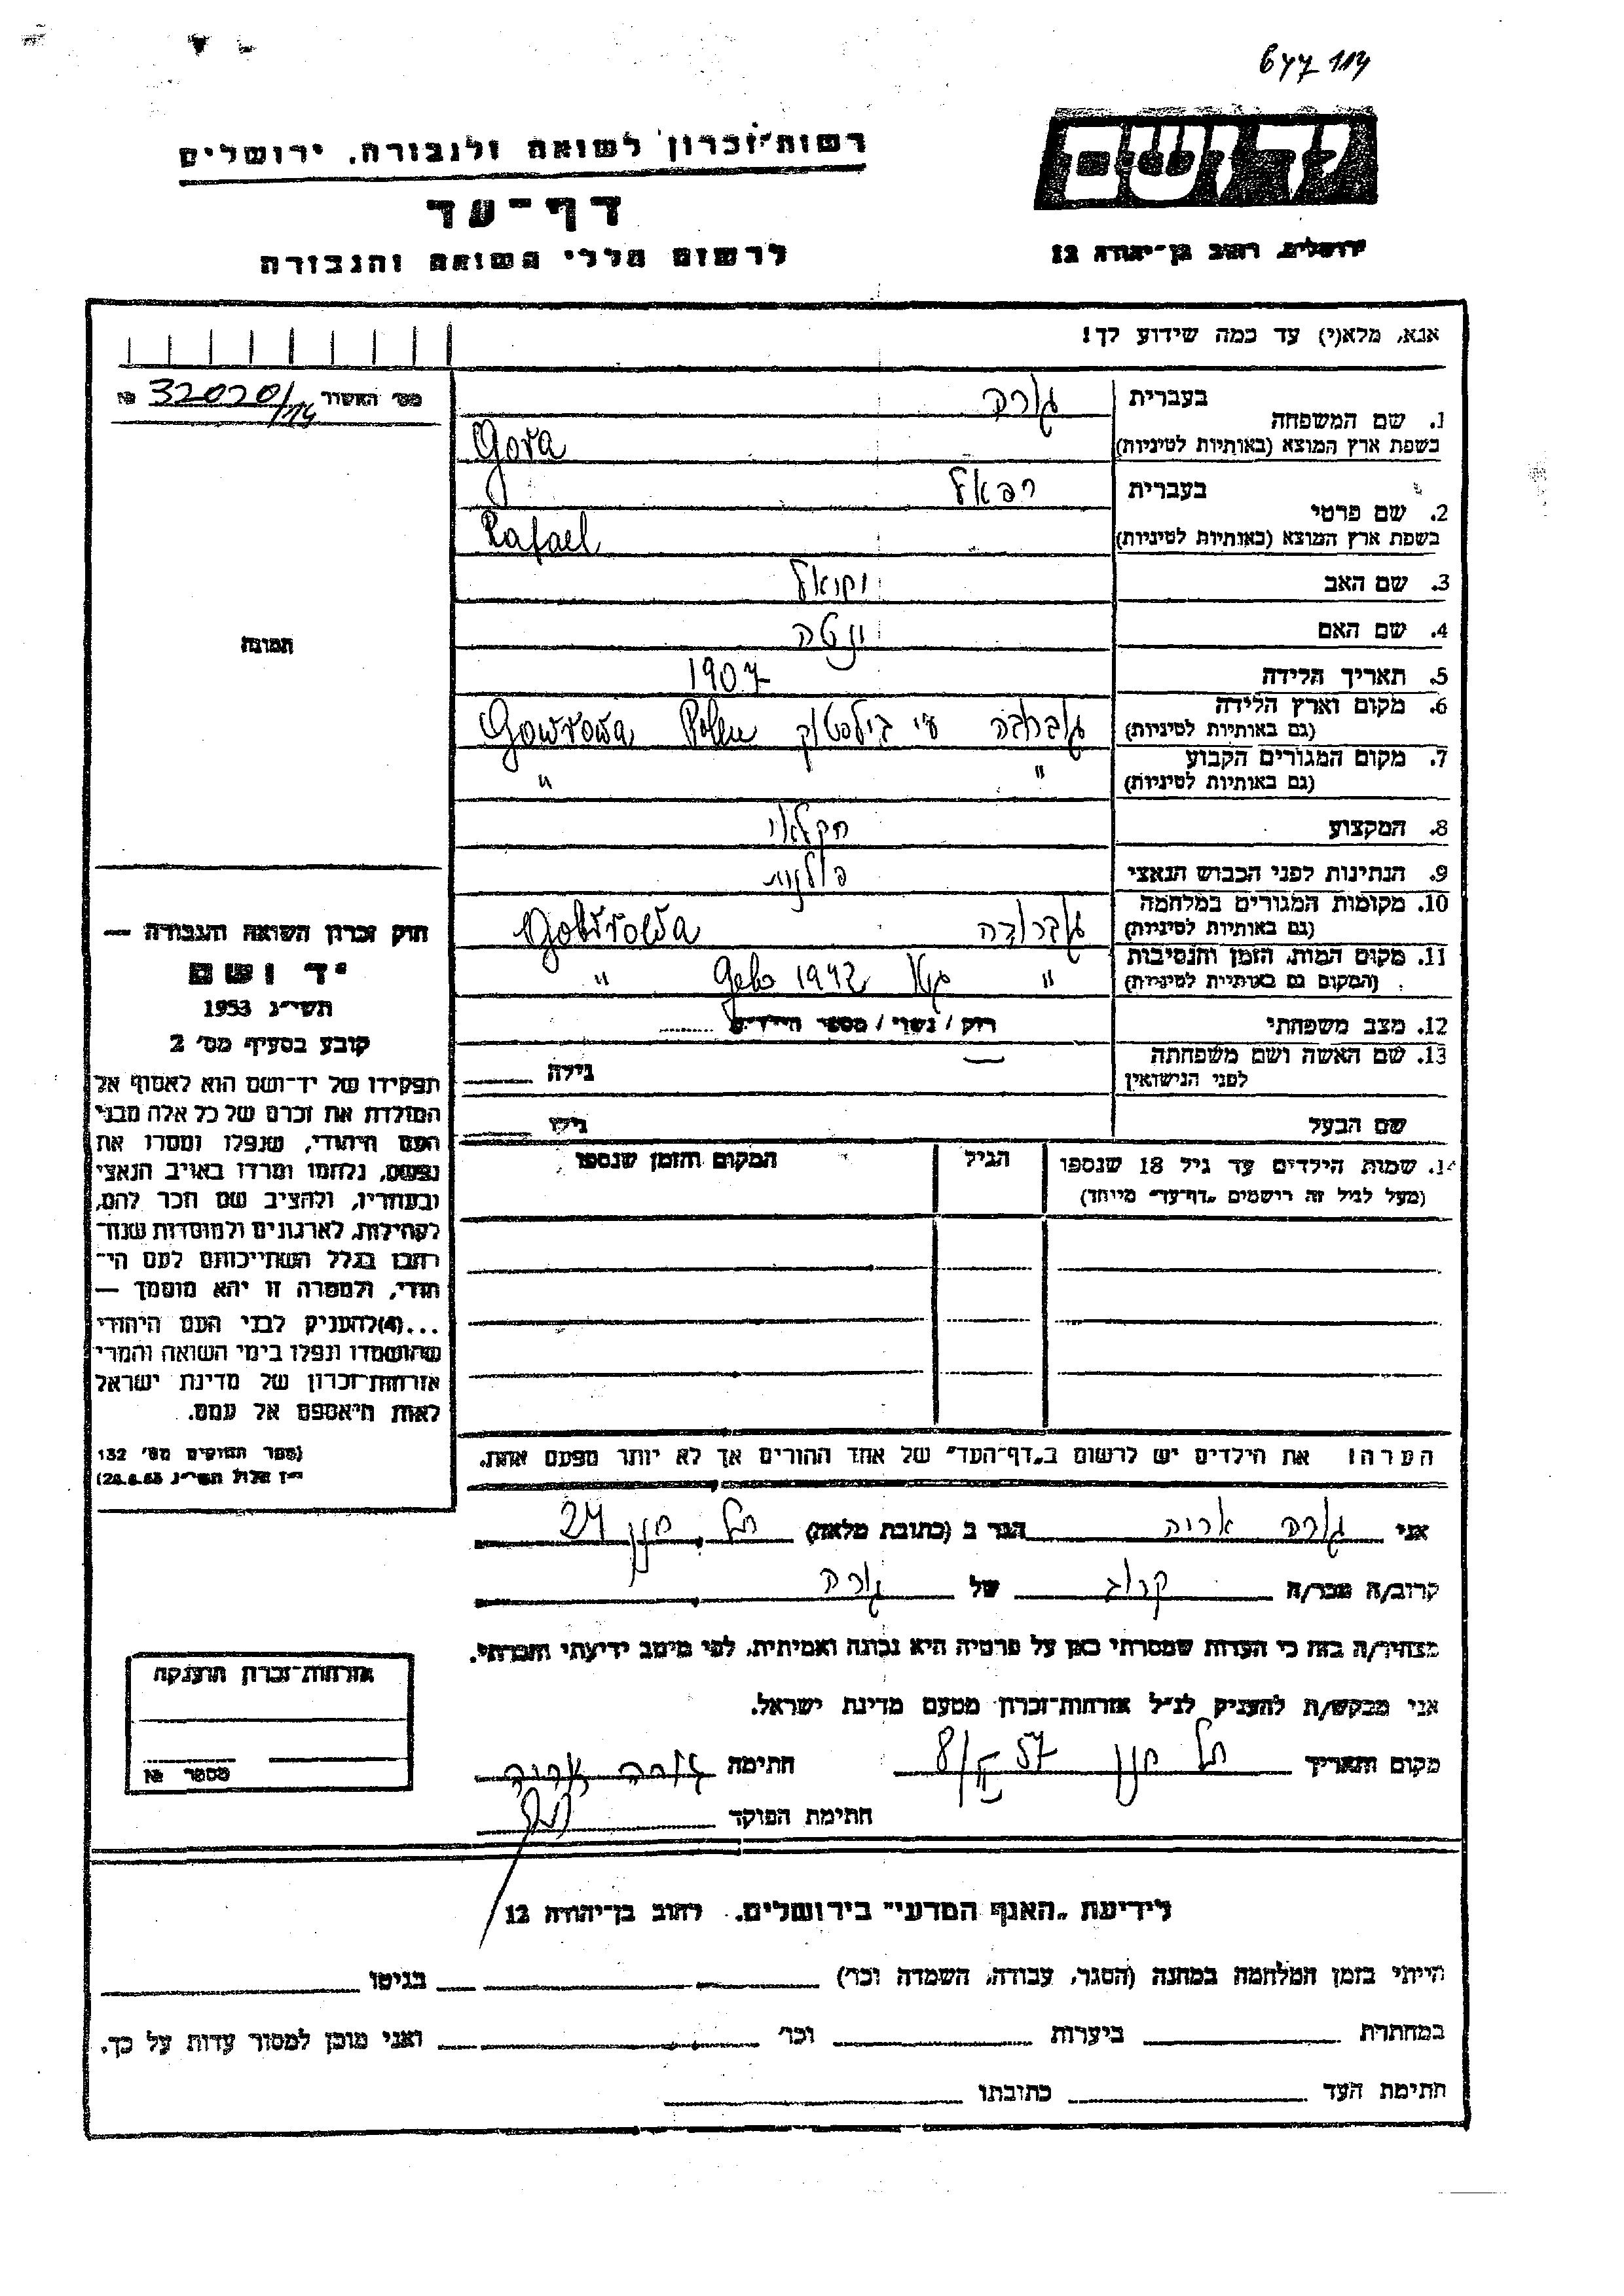 677 114
יד ושם
רשות־זכרון לשואה ולגבורה, ירושלים
דף־עד
לרשום חללי השואה והגבורה
ירושלים, רחוב בן־יהודה 12
אנא, מלא(י) עד כמה שידוע לך!
מס׳ האשור № 32020/114
1. שם המשפחה בעברית גורה
בשפת ארץ המוצא (באותיות לטיניות) Gora
2. שם פרטי בעברית רפאל
בשפת ארץ המוצא (באותיות לטיניות) Rafael
3. שם האב
4. שם האם
5. תאריך הלידה 1907
6. מקום וארץ הלידה (גם באותיות לטיניות) גוברובה ע״י ביליסטוק Polen Goworowa
7. מקום המגורים הקבוע (גם באותיות לטיניות) " "
8. המקצוע חקלאי
9. הנתינות לפני הכבוש הנאצי פולנית
10. מקומות המגורים במלחמה (גם באותיות לטיניות) גוברובה Goworowa
11. מקום המות, הזמן והנסיבות (המקום גם באותיות לטיניות) " 1942 "
12. מצב משפחתי רוק / נשוי / מספר הילדים
13. שם האשה ושם משפחתה לפני הנישואין — גילה
שם הבעל גילו
14. שמות הילדים עד גיל 18 שנספו הגיל המקום והזמן שנספו
(מעל לגיל זה רושמים "דף־עד" מיוחד)
הערה! את הילדים יש לרשום ב"דף־העד" של אחד ההורים אך לא יותר מפעם אחת.
תמונה
חוק זכרון השואה והגבורה —
יד ושם
תשי״ג 1953
קובע בסעיף מס׳ 2
תפקידו של יד־ושם הוא לאסוף אל
המולדת את זכרם של כל אלה מבני
העם היהודי, שנפלו ומסרו את
נפשם, נלחמו ומרדו באויב הנאצי
ובעוזריו, ולהציב שם וזכר להם,
לקהילות, לארגונים ולמוסדות שנח־
רבו בגלל השתייכותם לעם הי־
הודי, ולמטרה זו יהא מוסמך —
...(4)להעניק לבני העם היהודי
שהושמדו ונפלו בימי השואה והמרי
אזרחות־זכרון של מדינת ישראל
לאות היאספם אל עמם.
(ספר החוקים מס׳ 132
י״ז אלול תשי״ג 28.8.53)
אני גורה אריה הגר ב (כתובת מלאה) תל חנן 27
קרוב/ה מכר/ה קרוב של גורה
מצהיר/ה בזה כי העדות שמסרתי כאן על פרטיה היא נכונה ואמיתית, לפי מיטב ידיעתי והכרתי.
אני מבקש/ת להעניק לנ״ל אזרחות־זכרון מטעם מדינת ישראל.
מקום ותאריך תל חנן חתימה גורה אריה
חתימת הפוקד
אזרחות־זכרון הוענקה
מספר №
לידיעת "האגף המדעי" בירושלים. רחוב בן־יהודה 12
הייתי בזמן המלחמה במחנה (הסגר, עבודה, השמדה וכו׳) בגיטו
במחתרת ביערות וכו׳ ואני מוכן למסור עדות על כך.
חתימת העד כתובתו